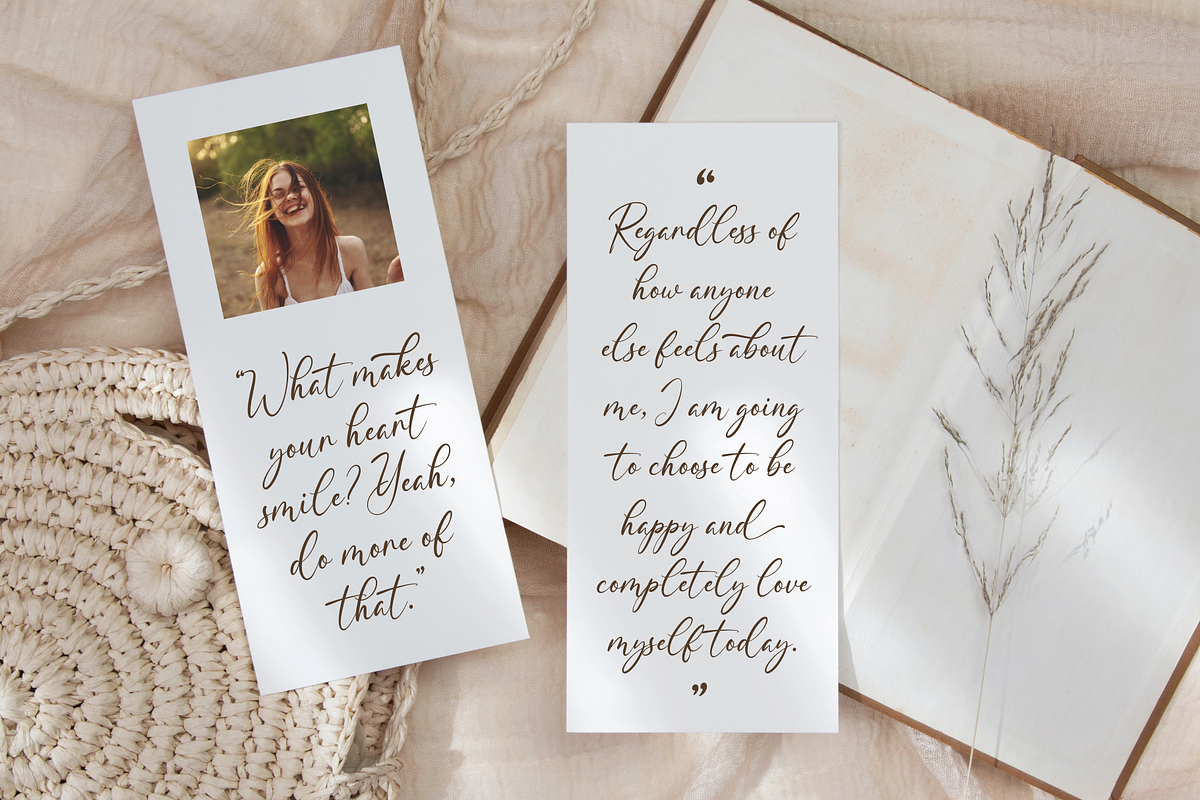 “What makes
your heart
smile? Yeah,
do more of
that.”
“
Regardless of
how anyone
else feels about
me, I am going
to choose to be
happy and
completely love
myself today.
”